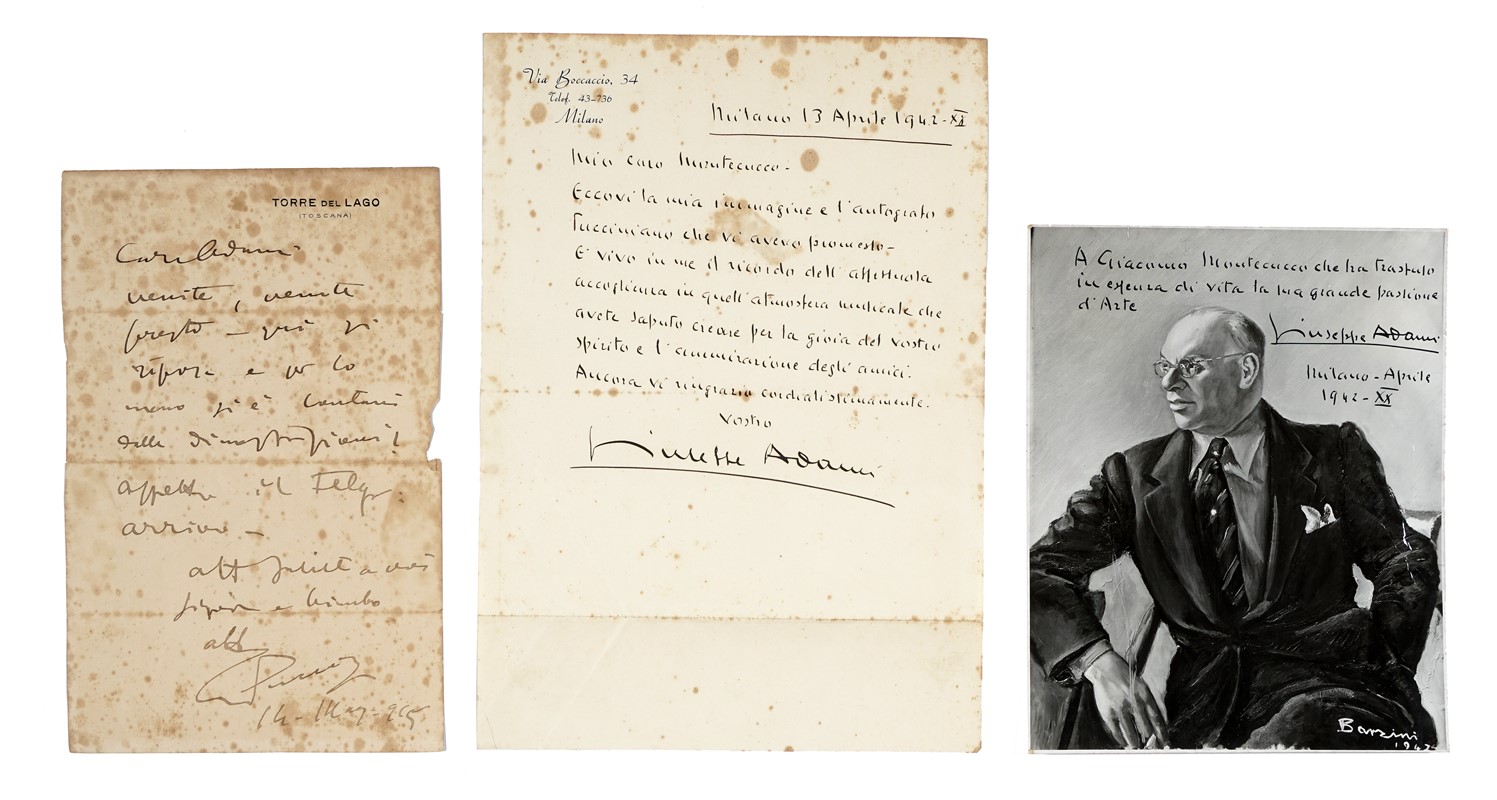 TORRE DEL LAGO
(TOSCANA)
Caro Adami
venite, venite
presto – qui si
riposa e per lo
meno si è lontani
dalle dimostrazioni!
aspetto il telegr.
arrivo –
aff saluti a voi
signora e bimbo
aff
Puccini
14 - Mag - 915
Via Boccaccio, 34
Telef. 43-736
Milano
Milano 13 Aprile 1942-XX
Mio caro Montecucco -
Eccovi la mia immagine e l'autografo
Pucciniano che vi avevo promesso -
E' vivo in me il ricordo dell'affettuosa
accoglienza in quell'atmosfera musicale che
avete saputo creare per la gioia del vostro
spirito e l'ammirazione degli amici.
Ancora vi ringrazio cordialissimamente.
Vostro
Giuseppe Adami
A Giacomo Montecucco che ha trasfuso
in essenza di vita la sua grande passione
d'Arte
Giuseppe Adami
Milano - Aprile
1942 - XX
Barzini
1942